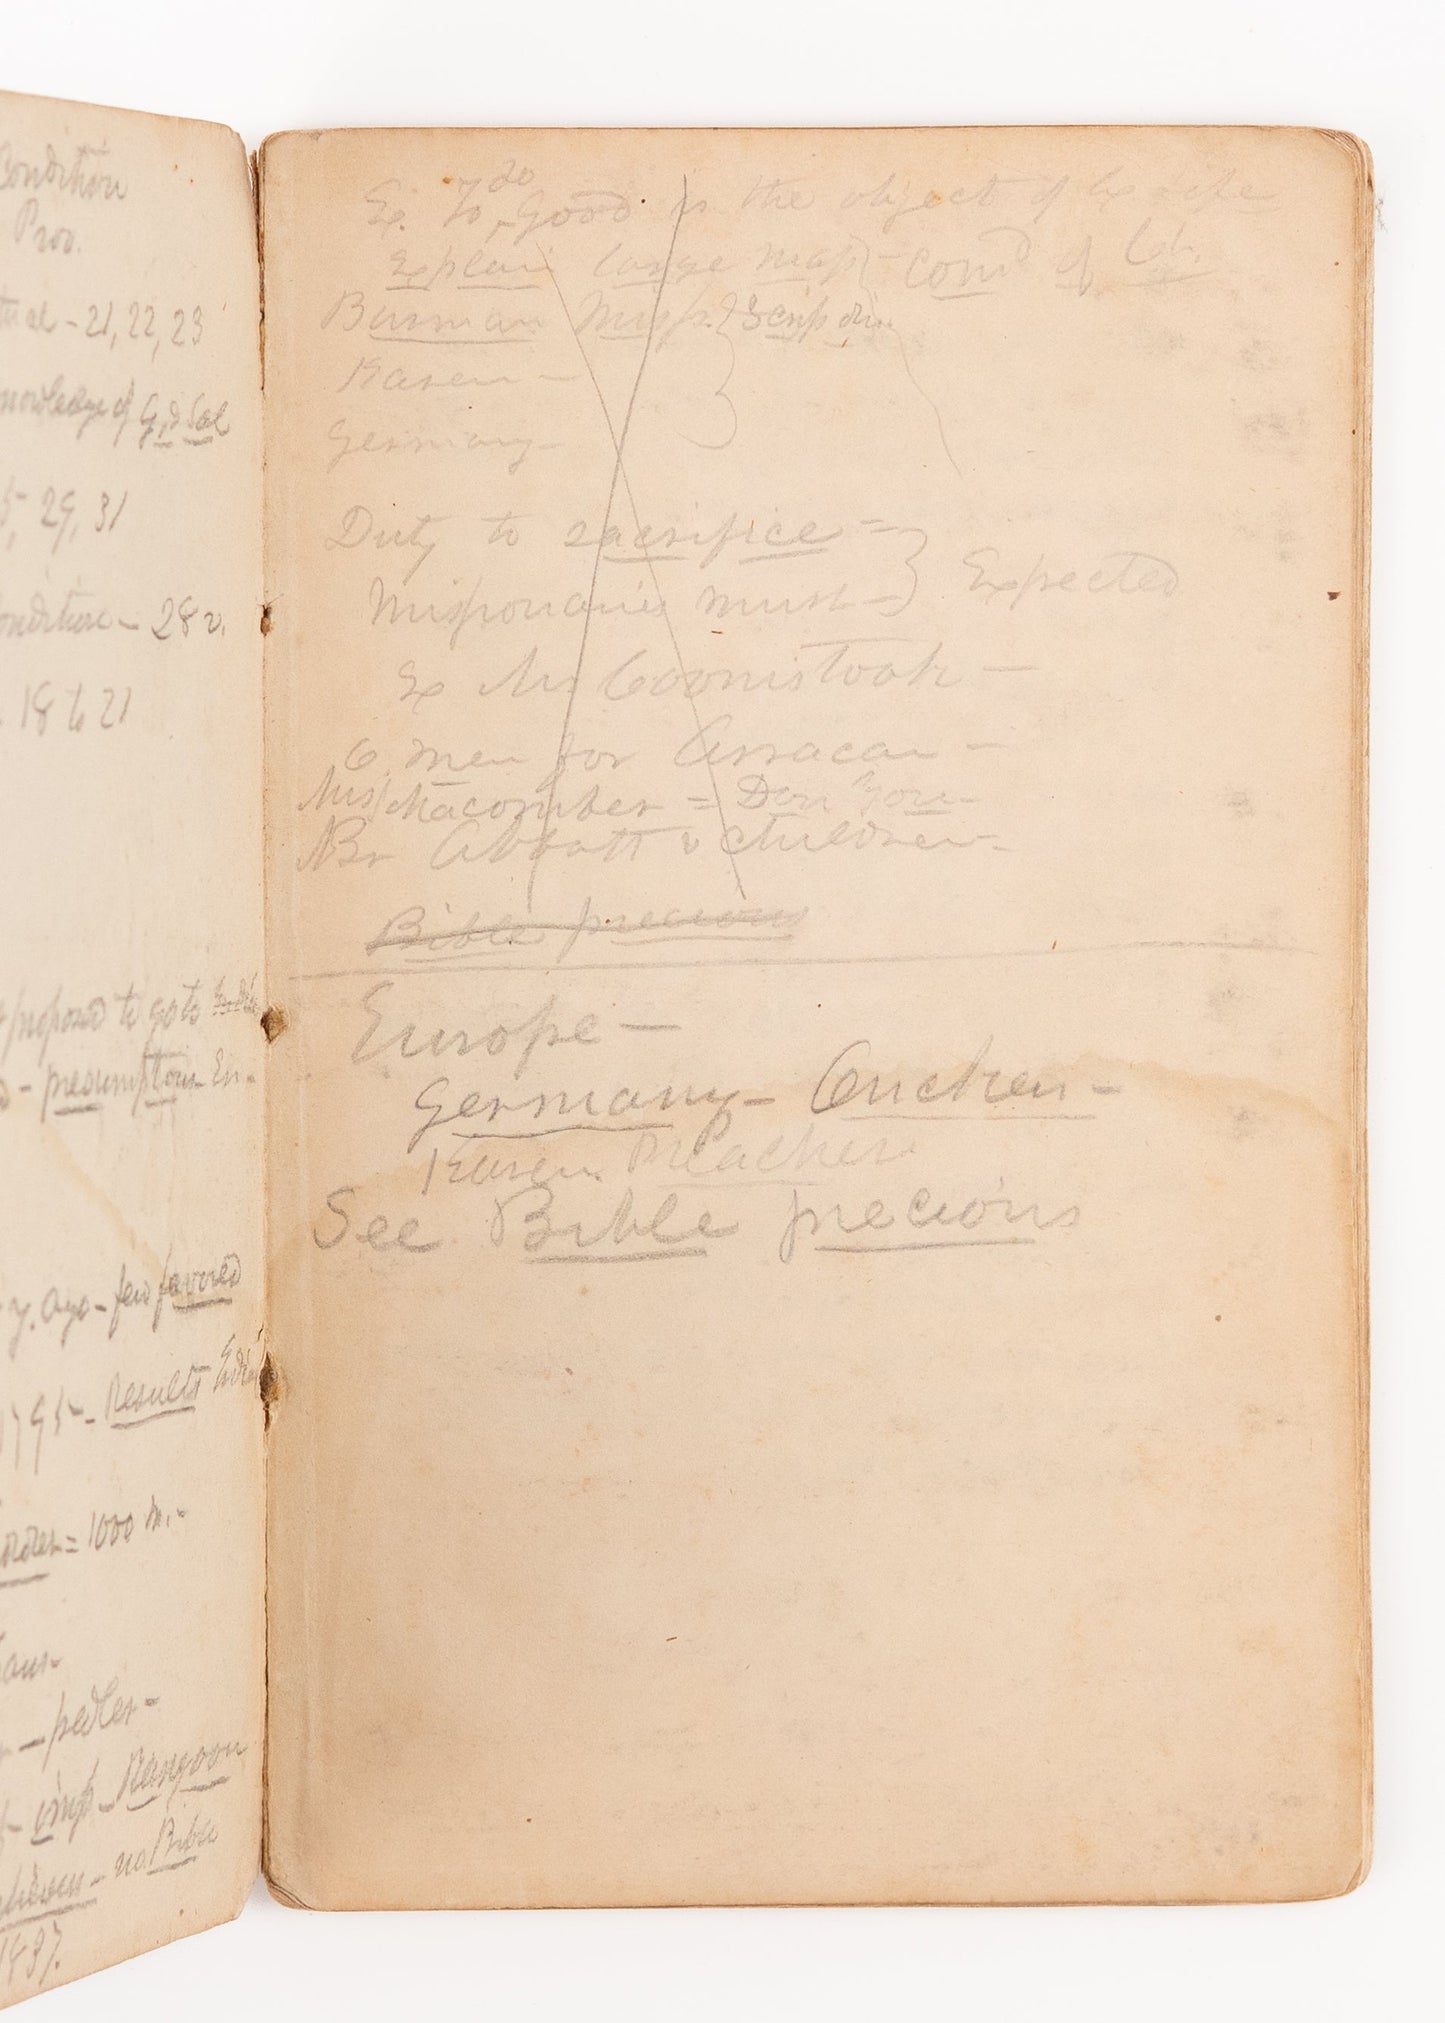 Condition
Prov.
- 21, 22, 23
knowledge of G. & Sal
29, 31
Condition - 28 v.
18 to 21
proposed to go to
- presumptous En-
y. ago - few favored
1795 - Results
= 1000 m. -
- pedler -
- imp - Rangoon
- no Bible
1837.
Ex. To do good is the object of life
Explain large map - Com'd of Ch.
Burman Miss.
Karen -
Germany -
Duty to sacrifice =
Missionaries must - Expected
Ex Mr Coomstock -
6 men for Arracan -
Miss Macomber = Don Yon -
Br Abbott & children -
Bible precious
Europe -
Germany - Oncken -
Karen Preacher
See Bible precious